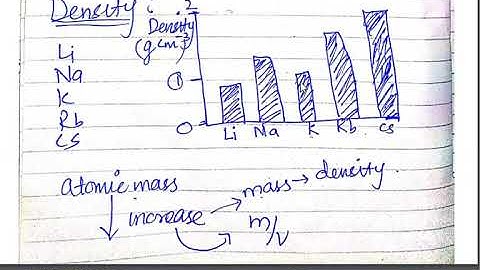 Density :
2
Density
(g cm⁻³)
Li
Na
K
Rb
Cs
1
0
Li Na K Rb Cs
atomic mass
increase
mass → density
m/v